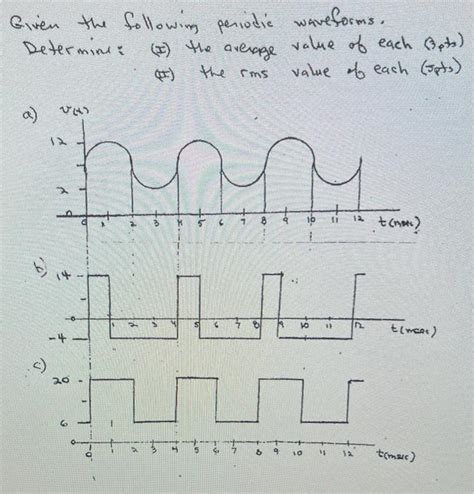 Given the following periodic waveforms.
Determine: (I) the average value of each (3pts)
(II) the rms value of each (5pts)
a) v(t)
12
2
0
0 1 2 3 4 5 6 7 8 9 10 11 12 t(msec)
b) 14
0
1 2 3 4 5 6 7 8 9 10 11 12 t(msec)
-4
c)
20
6
0
0 1 2 3 4 5 6 7 8 9 10 11 12 t(msec)